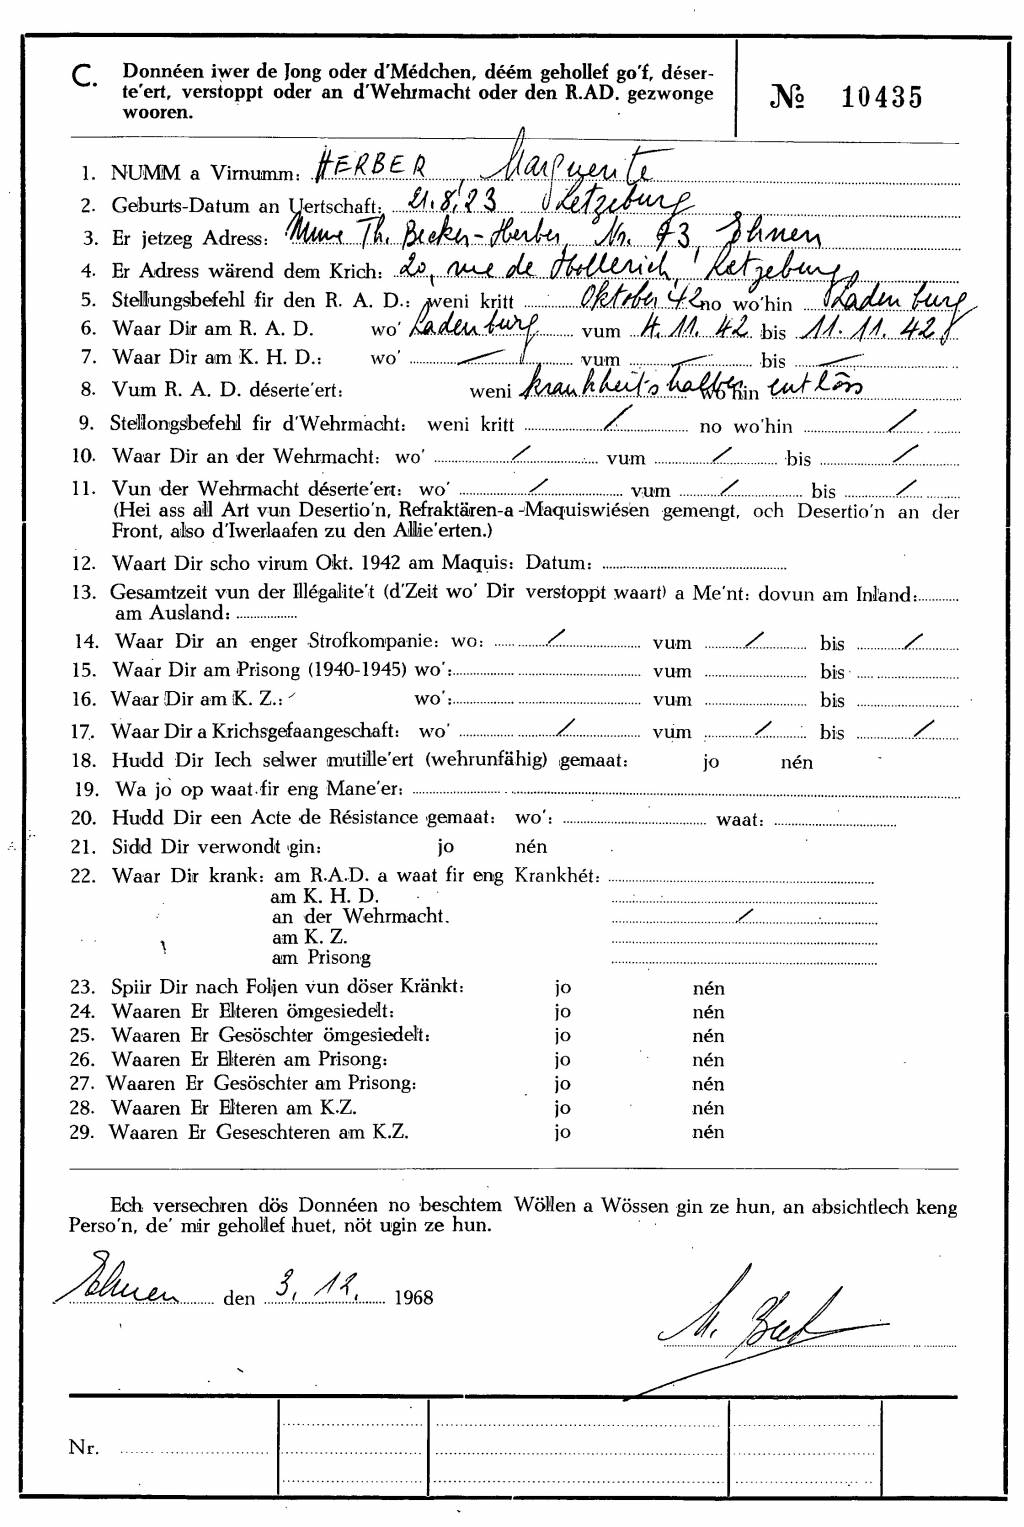 C. Donnéen iwer de Jong oder d'Médchen, déém gehollef go'f, déser-
te'ert, verstoppt oder an d'Wehrmacht oder den R.AD. gezwonge
wooren.
№ 10435
1. NUMM a Virnumm: HERBER, Marguerite
2. Geburts-Datum an Uertschaft: 21.8.23 Letzeburg
3. Er jetzeg Adress: Mme Th. Becker-Herber, Nr. 73, Ehnen
4. Er Adress wärend dem Krich: 20, rue de Hollerich, Letzeburg
5. Stellungsbefehl fir den R. A. D.: weni kritt Oktober 42 no wo'hin Ladenburg
6. Waar Dir am R. A. D. wo' Ladenburg vum 4.11.42 bis 11.11.42
7. Waar Dir am K. H. D.: wo' — vum — bis —
8. Vum R. A. D. déserte'ert: weni krankheitshalber wo'hin entlöss
9. Stellongsbefehl fir d'Wehrmacht: weni kritt / no wo'hin /
10. Waar Dir an der Wehrmacht: wo' / vum / bis /
11. Vun der Wehrmacht déserte'ert: wo' / vum / bis /
(Hei ass all Art vun Desertio'n, Refraktären-a-Maquiswiésen gemengt, och Desertio'n an der
Front, also d'Iwerlaafen zu den Allie'erten.)
12. Waart Dir scho virum Okt. 1942 am Maquis: Datum:
13. Gesamtzeit vun der Illégalite't (d'Zeit wo' Dir verstoppt waart) a Me'nt: dovun am Inland:
am Ausland:
14. Waar Dir an enger Strofkompanie: wo: / vum / bis /
15. Waar Dir am Prisong (1940-1945) wo': vum bis
16. Waar Dir am K. Z.: wo': vum bis
17. Waar Dir a Krichsgefaangeschaft: wo' / vum / bis /
18. Hudd Dir Iech selwer mutille'ert (wehrunfähig) gemaat: jo nén
19. Wa jo op waat fir eng Mane'er:
20. Hudd Dir een Acte de Résistance gemaat: wo': waat:
21. Sidd Dir verwondt gin: jo nén
22. Waar Dir krank: am R.A.D. a waat fir eng Krankhét:
am K. H. D.
an der Wehrmacht. /
am K. Z.
am Prisong
23. Spiir Dir nach Foljen vun döser Kränkt: jo nén
24. Waaren Er Elteren ömgesiedelt: jo nén
25. Waaren Er Gesöschter ömgesiedelt: jo nén
26. Waaren Er Elteren am Prisong: jo nén
27. Waaren Er Gesöschter am Prisong: jo nén
28. Waaren Er Elteren am K.Z. jo nén
29. Waaren Er Geseschteren am K.Z. jo nén
Ech versechren dös Donnéen no beschtem Wöllen a Wössen gin ze hun, an absichtlech keng
Perso'n, de' mir gehollef huet, nöt ugin ze hun.
Ehnen den 3. 12. 1968
M. Beck
Nr.